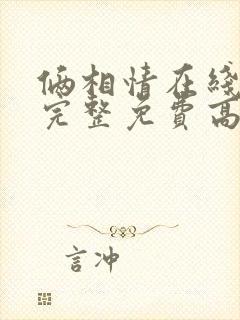 俩相情在綫
完整免費高
言冲